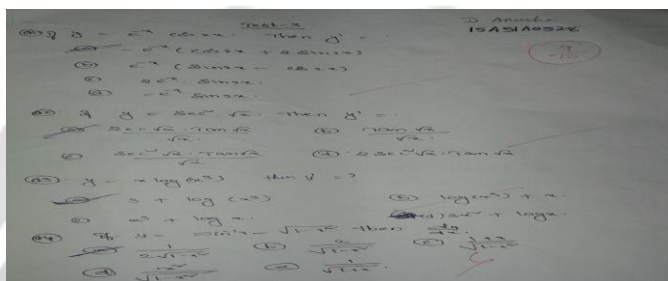 Test-x
D Anusha
15A51A0528
Q1) If y = e^-x cos2x. Then y' =
(a) -e^-x (cos2x + 2 sin2x)
(b) e^-x (sin2x - cos2x)
(c) 2e^-x. sin2x.
(d) -e^-x sin2x.
Q2) If y = sec² √x. Then y' =.
(a) sec √x . Tan √x / √x. (b) Tan √x / √x
(c) sec² √x. Tan √x / √x (d) 2 sec² √x . Tan √x
Q3) y = x log (x³) then y' = ?
(a) 3 + log (x³) (b) log(x³) + x.
(c) x³ + log x. (d) 3x² + log x.
Q4) If y = sin⁻¹x - √1-x² then dy/dx =
(a) 1 / 2√1-x² (b) / √1-x² (c) 1+x / √1-x²
(d) x² / √1-x² (e) 1 / √1+x.